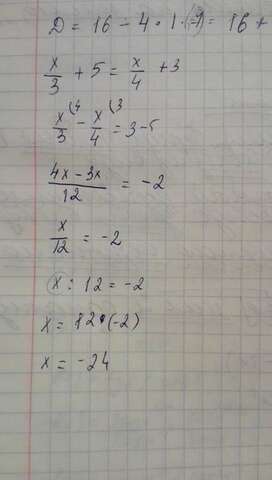 D = 16 - 4 · 1 · (-1) = 16 +
x/3 + 5 = x/4 + 3
x/3 (4 - x/4 (3 = 3-5
4x - 3x / 12 = -2
x/12 = -2
x : 12 = -2
x = 12 · (-2)
x = -24